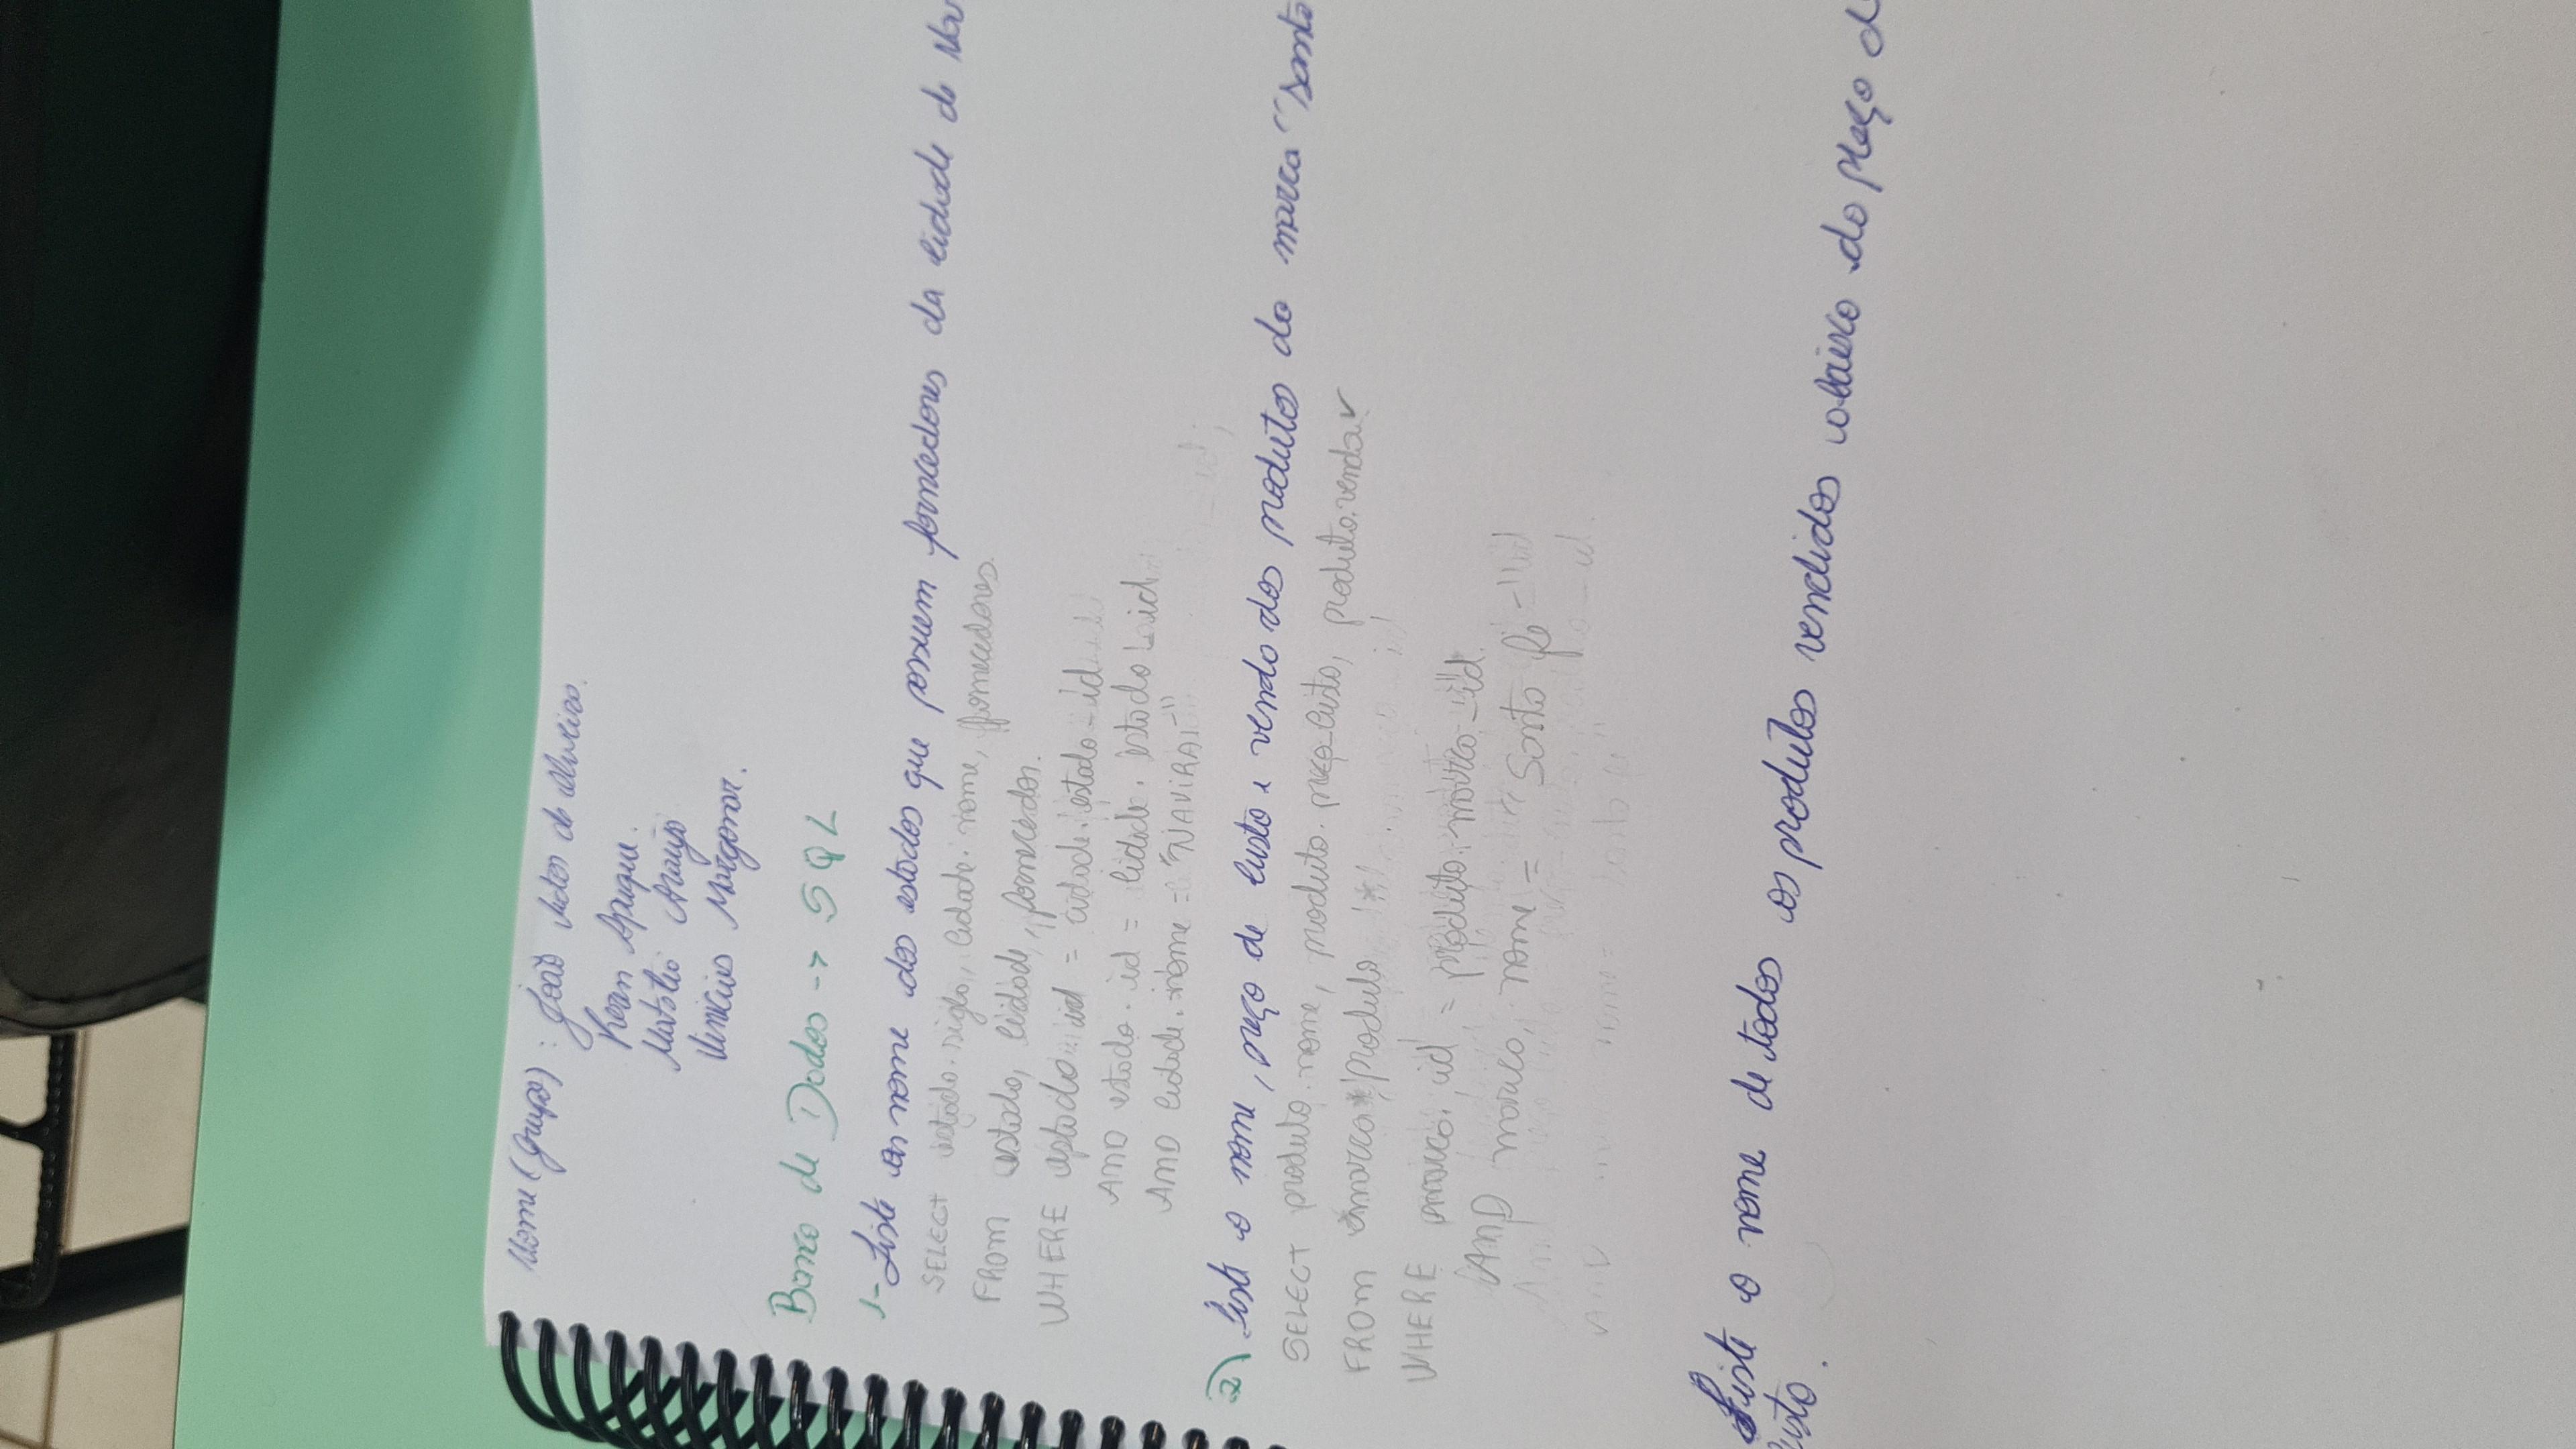 Nome (Grupo) : João Victor de Oliveira.
Araújo
Vinicius Margonar.
Banco de Dados -> SQL
1- Liste os nome dos estados que possuem fornecedores da cidade de Nav
SELECT estado.sigla, cidade.nome, fornecedores.
FROM estado, cidade, fornecedor.
WHERE estado.id = cidade.estado_id
AND estado.id = cidade.estado_id
AND cidade.nome = "NAVIRAI"
2) Liste o nome, preço de custo e venda dos produtos da marca "Santa
SELECT produto.nome, produto.preço_custo, produto.venda
FROM marca, produto
WHERE marca.id = produto.marca_id.
AND marca.nome = "Santa fe"
Liste o nome de todos os produtos vendidos abaixo do preço d
usto.